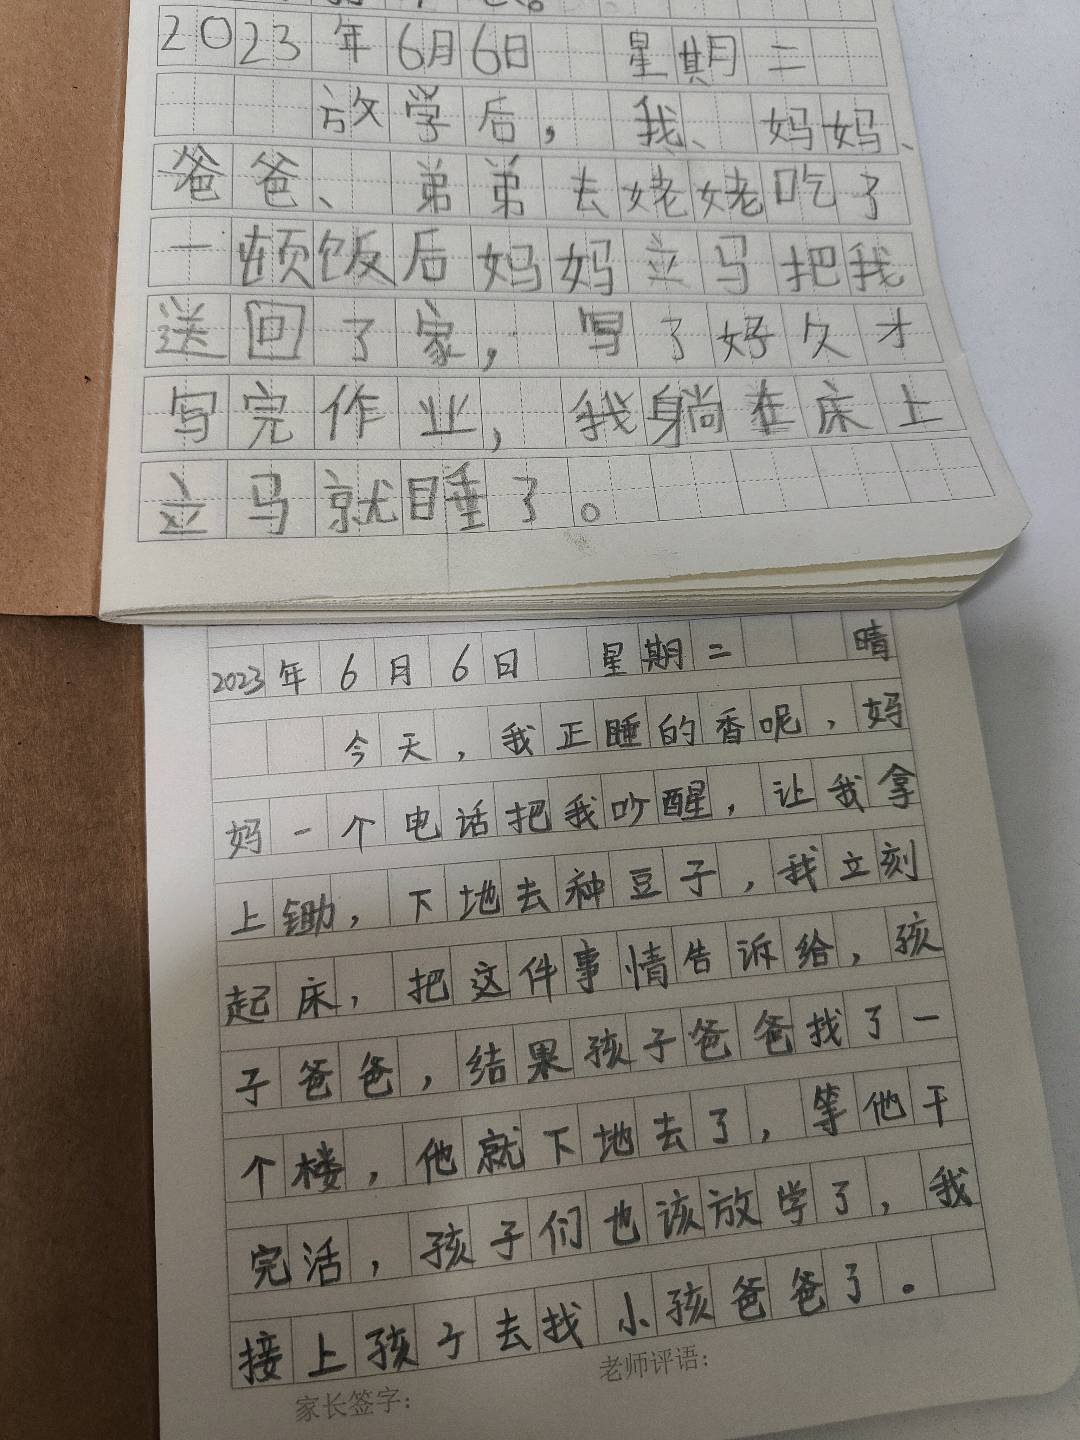 2023年6月6日 星期二
放学后，我、妈妈、
爸爸、弟弟去姥姥吃了
一顿饭后妈妈立马把我
送回了家，写了好久才
写完作业，我躺在床上
立马就睡了。
2023年6月6日 星期二 晴
今天，我正睡的香呢，妈
妈一个电话把我吵醒，让我拿
上锄，下地去种豆子，我立刻
起床，把这件事情告诉给，孩
子爸爸，结果孩子爸爸找了一
个楼，他就下地去了，等他干
完活，孩子们也该放学了，我
接上孩子去找小孩爸爸了。
老师评语：
家长签字：